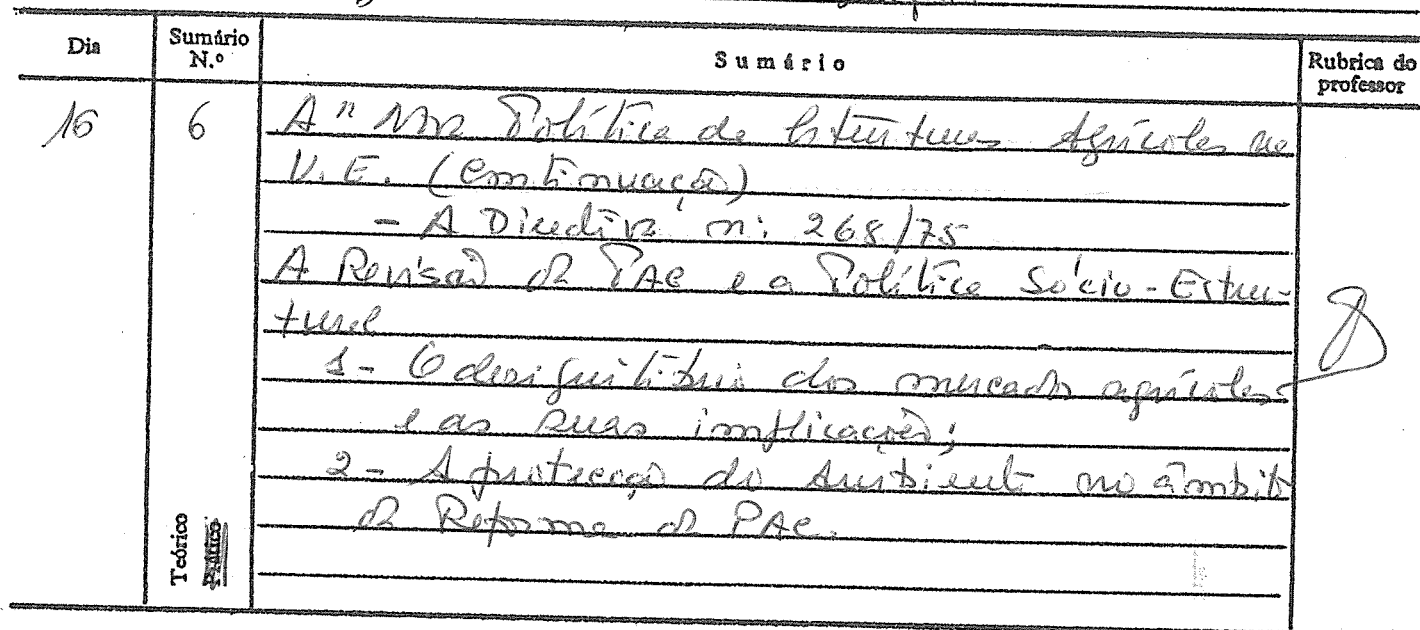 Dia Sumário N.º Sumário Rubrica do professor
16 6 A Política de Estruturas Agrícolas na
U.E. (Continuação)
- A Directiva n: 268/75
A Revisão da PAC e a Política Sócio-Estru-
tural
1- O desiquilíbrio dos mercados agrícolas
e as suas implicações;
2- A protecção do Ambiente no âmbito
da Reforma da PAC.
Teórico
Prático